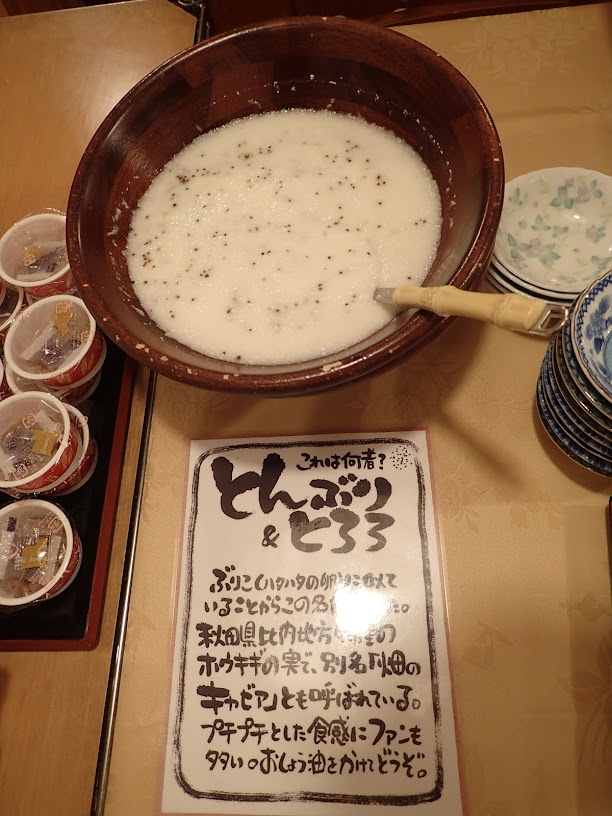 これは何者?
とんぶり
&とろろ
ぶりこ(ハタハタの卵)に似て
いることからこの名
秋田県比内地方
ホウキギの実で、別名「畑の
キャビア」とも呼ばれている。
プチプチとした食感にファンも
多い。おしょう油をかけてどうぞ。